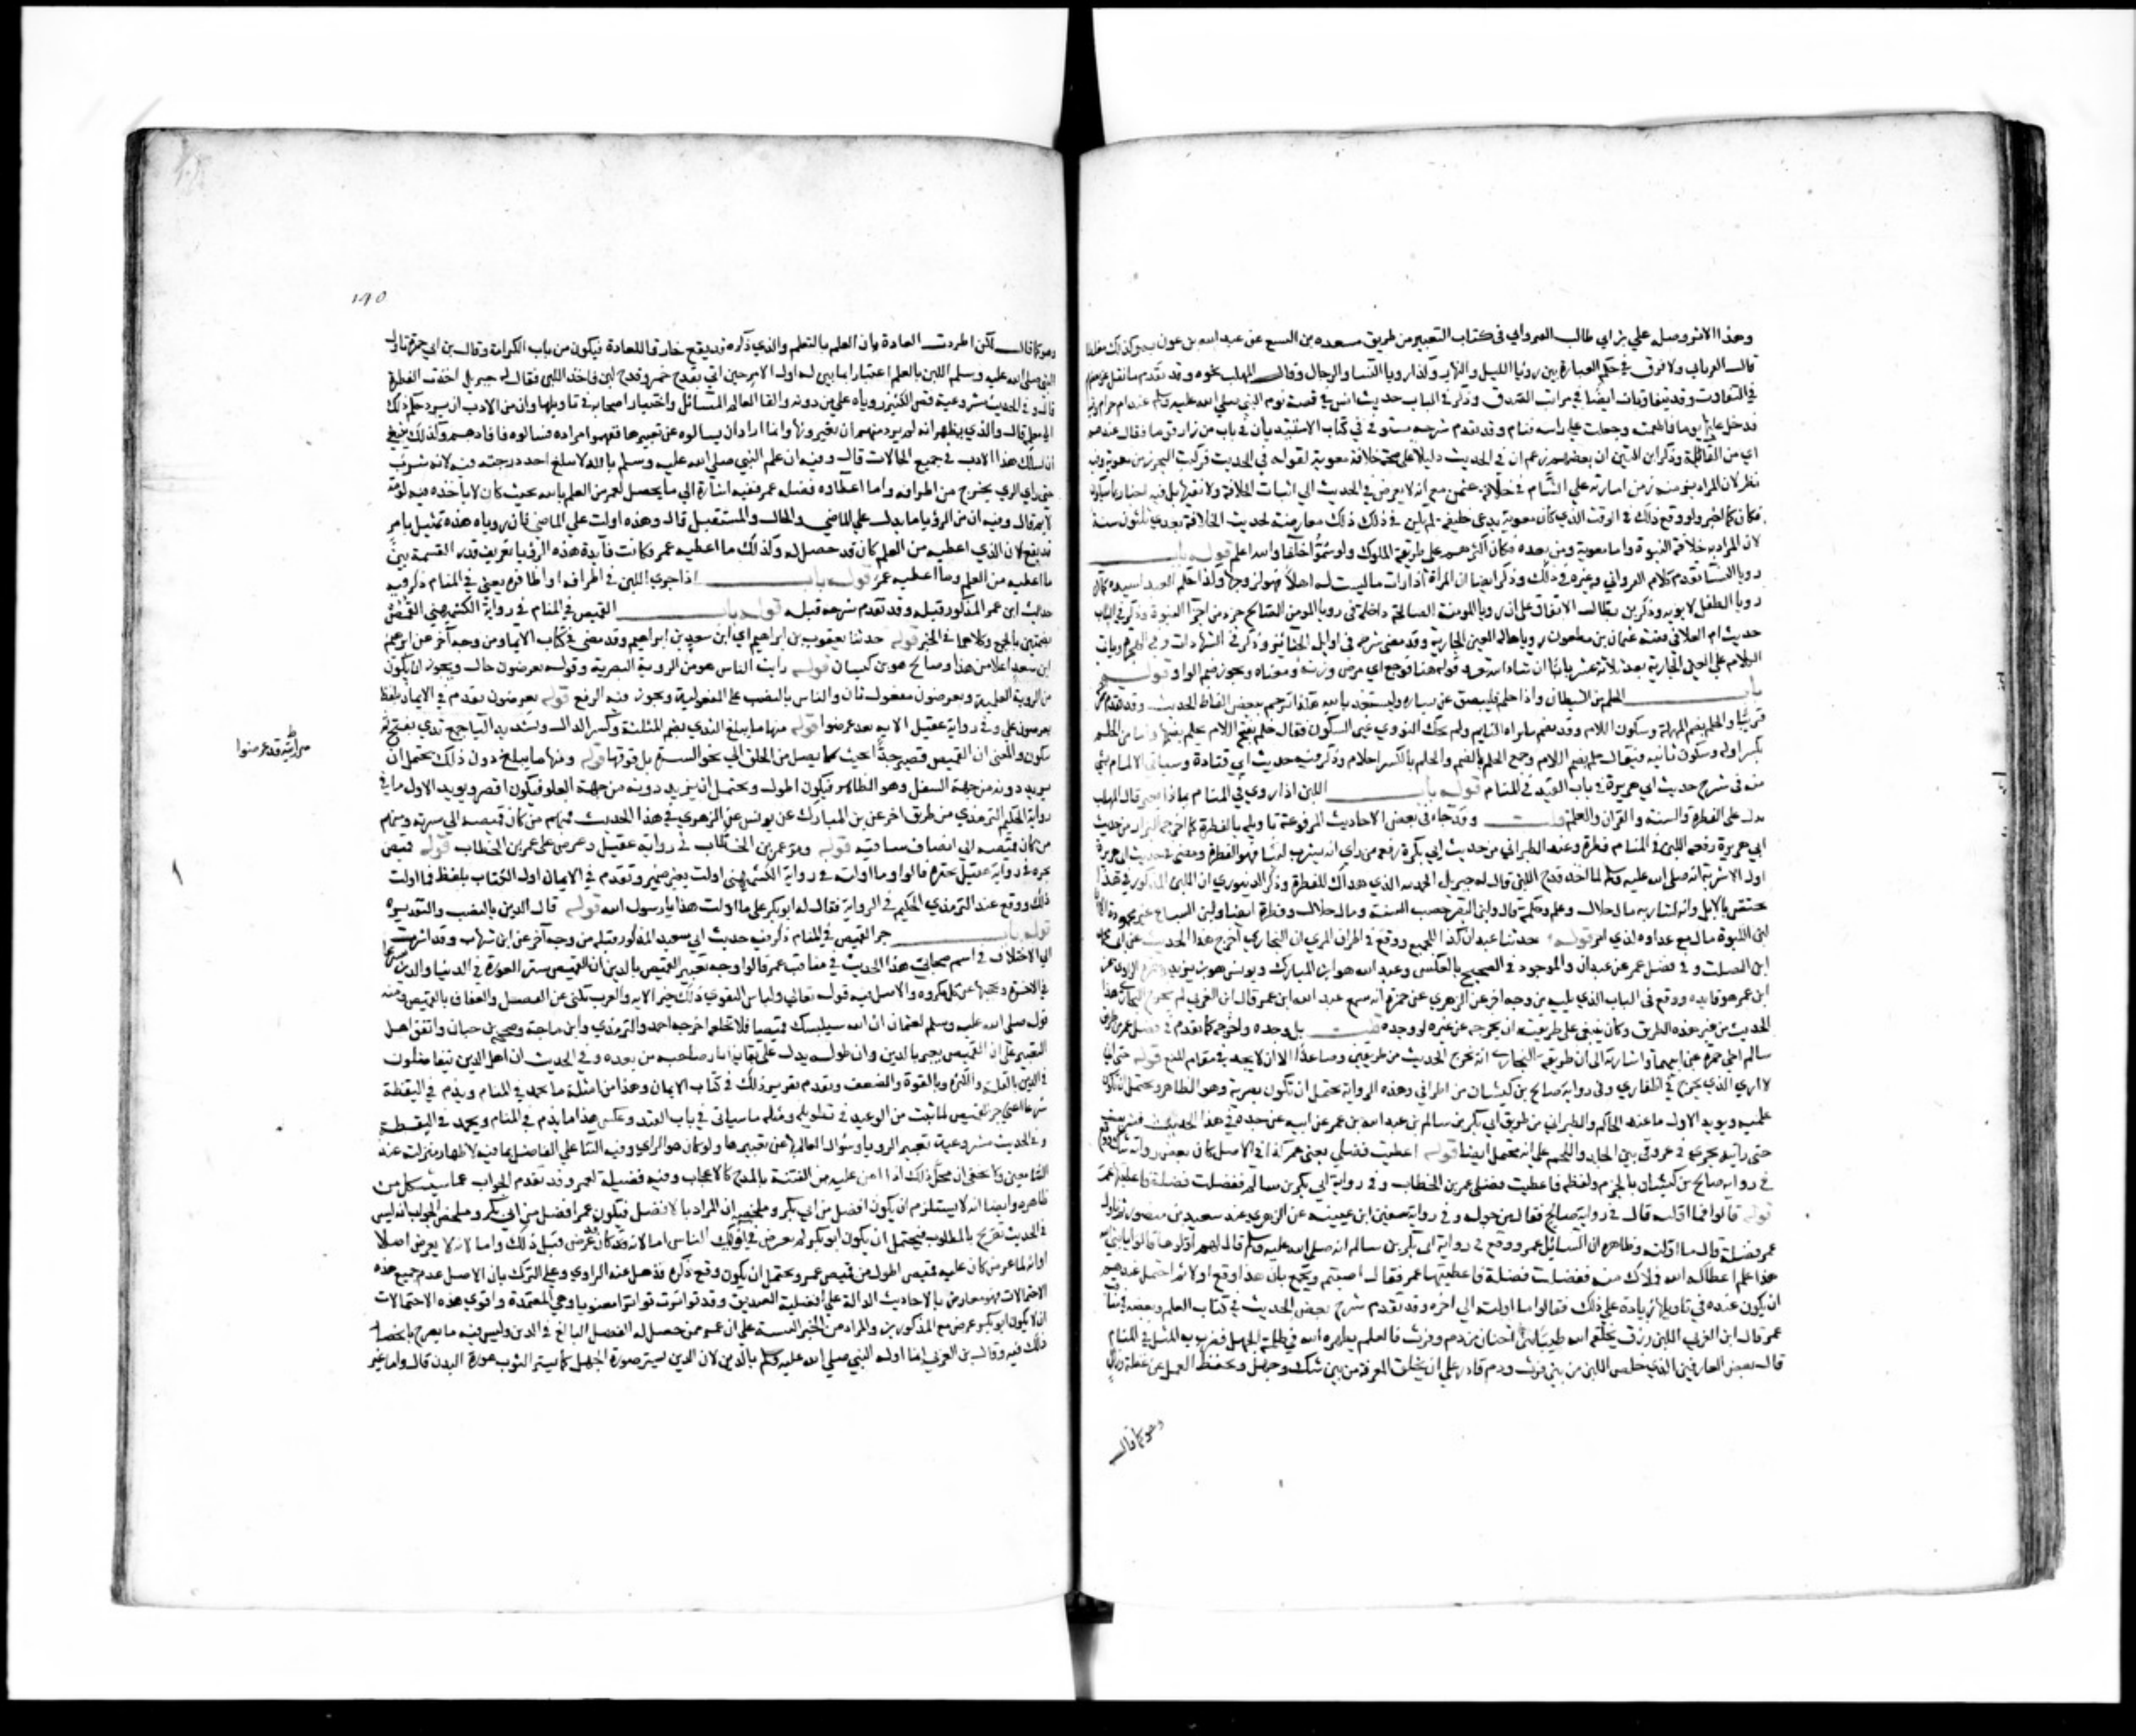 وهذا الاثر وصله علي بن ابي طالب القيرواني في كتاب التعبير من طريق مسعدة بن اليسع عن عبد الله بن عون به
قال القيرواني ولا فرق في حكم العبارة بين رؤيا الليل والنهار وكذا رويا النسا والرجال وقال المهلب نحوه وقد تقدم ما نقل عن بعضهم
في التفاوت وقد يتفاوتان ايضا في مراتب الصدق وذكر في الباب حديث انس في قصة نوم النبي صلى الله عليه وسلم عند ام حرام وفيه
فدخل عليها يوما فاطعمته وجعلت تفلي راسه فنام وقد تقدم شرحه مستوفى في كتاب الاستيذان في باب من زار قوما فقال عندهم
اي من القائلة وذكر ابن التين ان بعضهم زعم ان في الحديث دليلا على صحة خلافة معوية لقوله في الحديث فركبت البحر زمن معوية وفيه
نظر لان المراد بزمنه زمن امارته على الشام في خلافة عثمن مع انه لا تعرض في الحديث الى اثبات الخلافة ولا نفيها بل فيه اخبار بما سيكون
فكان كما اخبر ولو وقع ذلك في الوقت الذي كان معوية يدعى خليفة لم يكن في ذلك معارضة لحديث الخلافة بعدي ثلثون سنة
لان المراد به خلافة النبوة واما معوية ومن بعده فكان اكثرهم على طريقة الملوك ولو سموا خلفا والله اعلم قوله باب
رويا النسا تقدم كلام القيرواني وغيره في ذلك وذكر ايضا ان المراة اذا رات ما ليست له اهلا فهو لزوجها وكذا حكم العبد لسيده كما ان
رويا الطفل لابويه وذكر بن بطال الاتفاق على ان رويا المومنة الصالحة داخلة في رويا المومن الصالح جزء من اجزا النبوة وذكر في الباب
حديث ام العلا في قصة عثمان بن مظعون ورؤياها له العين الجارية وقد مضى شرحه في اوايل الجنائز وذكر في الشهادات وفي الهجرة وياتي
الكلام على العين الجارية بعد ثلاثة عشر بابا ان شاء الله تعالى
باب الحلم من الشيطان واذا حلم فليبصق عن يساره وليستعذ بالله هكذا ترجم ببعض الفاظ الحديث وقد تقدم
قريبا والحلم بضم المهملة وسكون اللام وقد تضم ما يراه النايم ولم يحك النووي غير السكون فقال حلم بفتح اللام يحلم بضمها واما من الحلم
بكسر اوله وسكون ثانيه فيقال حلم بضم اللام وجمع الحلم بالضم والحلم بالكسر احلام وذكر فيه حديث ابي قتادة وسياتي الالمام بشي
منه في شرح حديث ابي هريرة في باب القيد في المنام قوله باب اللبن اذا روي في المنام بماذا يعبر قال المهلب
يدل على الفطرة والسنة والقران والعلم قلت وقد جاء في بعض الاحاديث المرفوعة تاويله بالفطرة كما اخرجه البزار من حديث
ابي هريرة رفعه اللبن في المنام فطرة وعند الطبراني من حديث ابي بكرة رفعه من راى انه يشرب لبنا فهو الفطرة ومضى في حديث ابي هريرة
اول الاشربة انه صلى الله عليه وسلم لما اخذ قدح اللبن قال له جبريل الحمد لله الذي هداك للفطرة وذكر الدينوري ان اللبن المذكور في هذا
يختص بالابل وانه لشاربه مال حلال وعلم وحكمة قال ولبن البقر خصب السنة ومال حلال وفطرة ايضا ولبن السباع غير محمودة الا ان
لبن اللبوة مال مع عداوة لذي امر قوله حدثنا عبدان كذا للجميع ووقع في اطراف المزي ان البخاري اخرج هذا الحديث عن ابي جعفر محمد
ابن الصلت وفي فضل عمر عن عبدان والموجود في الصحيح بالعكس وعبد الله هو ابن المبارك ويونس هو بن يزيد
ابن عمر هو فايده ووقع في الباب الذي يليه من وجه اخر عن الزهري عن حمزة انه سمع عبد الله ابن عمر قال ابن العربي لم يخرج البخاري هذا
الحديث من غير هذه الطريق وكان ينبغي على طريقته ان يخرجه عن غيره لو وجده قلت بل وجده واخرجه كما تقدم في فضل عمر من طريق
سالم اخي حمزة عن ابيهما واشارته الى ان طريقة البخاري انه يخرج الحديث من طريقين وصاعدا الا ان لا يجد في مقام المنع قوله حتى اني
لارى الري يخرج في اظفاري وفي رواية صالح بن كيسان من اطرافي وهذه الرواية يحتمل ان تكون بصرية وهو الظاهر ويحتمل ان تكون
علمية ويويد الاول ما عند الحاكم والطبراني من طريق ابي بكر بن سالم بن عبد الله بن عمر عن ابيه عن جده في هذا الحديث فشربت
حتى رايته يجري في عروقي بين الجلد واللحم على انه محتمل ايضا قوله اعطيت فضلي يعني عمر كذا في الاصل كان بعض رواته شك ووقع
في رواية صالح بن كيسان بالجزم ولفظه فاعطيت فضلي عمر بن الخطاب وفي رواية ابي بكر بن سالم ففضلت فضلة فاعطيتها عمر
قوله قالوا فما اولته قال في رواية صالح فقال من حوله وفي رواية سفين ابن عيينة عن الزهري عند سعيد بن منصور ثم ناول
عمر فضلة قال ما اولته وظاهره ان السائل عمر ووقع في رواية ابي بكر بن سالم انه صلى الله عليه وسلم قال لهم اولوها قالوا يا نبي الله
هذا علم اعطاكه الله فملاك منه ففضلت فضلة فاعطيتها عمر فقال اصبتم ويجمع بان هذا وقع اولا ثم احتمل عندهم
ان يكون عنده في تاويلها زيادة على ذلك فقالوا ما اولت الى اخره وقد تقدم شرح بعض الحديث في كتاب العلم وبعضه في مناقب
عمر قال ابن العربي اللبن رزق يخلقه الله طيبا بين اخباث من دم وفرث كالعلم يظهره الله في ظلمة الجهل فضرب به المثل في المنام
قال بعض العارفين الذي خلص اللبن من بين فرث ودم قادر على ان يخلق المعرفة من بين شك وجهل ويحفظ العمل عن غفلة وزلل
وهو كما قال
وهو كما قال لكن اطردت العادة بان العلم بالتعلم والذي ذكره قد يقع خارقا للعادة فيكون من باب الكرامة وقال بن ابي جمرة تاول
النبي صلى الله عليه وسلم اللبن بالعلم اعتبارا بما بين له اول الامر حين اتي بقدح خمر وقدح لبن فاخذ اللبن فقال له جبريل اخذت الفطرة
قال وفي الحديث مشروعية قص الكبير روياه على من دونه والقا العالم المسائل واختبار اصحابه في تاويلها وان من الادب ان يرد
الى معلمه قال والذي يظهر انه لم يرد منهم ان يعبروها وانما اراد ان يسالوه عن تعبيرها ففهموا مراده فسالوه فافادهم وكذلك ينبغي
ان يسلك هذا الادب في جميع الحالات قال وفيه ان علم النبي صلى الله عليه وسلم بالله لا يبلغ احد درجته فيه لانه شرب
حتى راى الري يخرج من اطرافه واما اعطاوه فضله عمر ففيه اشارة الى ما يحصل لعمر من العلم بالله بحيث كان لا ياخذه فيه لومة
لايم قال وفيه ان من الرؤيا ما يدل على الماضي والحال والمستقبل قال وهذه اولت على الماضي فان روياه هذه تمثيل بامر
قد يقع لان الذي اعطيه من العلم كان قد حصل له وكذلك ما اعطيه عمر فكانت فايدة هذه الرؤيا تعريف قدر النسبة بين
ما اعطيه من العلم وما اعطيه عمر قوله باب اذا جرى اللبن في اطرافه او اظافره يعني في المنام ذكر فيه
حديث ابن عمر المذكور قبله وقد تقدم شرحه قبله قوله باب القميص في المنام في رواية الكشميهني القمص
بضمتين بالجمع وكلاهما في الخبر قوله حدثنا يعقوب بن ابراهيم اي ابن سعد بن ابراهيم وقد مضى في كتاب الايمان من وجه آخر عن ابرهيم
ابن سعد اعلا من هذا وصالح هو بن كيسان قوله رايت الناس هو من الروية البصرية وقوله يعرضون حال ويجوز ان يكون
من الروية العلمية ويعرضون مفعول ثان والناس بالنصب على المفعولية ويجوز فيه الرفع قوله يعرضون تقدم في الايمان بلفظ
يعرضون علي وفي رواية عقيل الاتية بعد عرضوا قوله منها ما يبلغ الثدي بضم المثلثة وكسر الدال وتشديد اليا جمع ثدي بفتح ثم
سكون والمعنى ان القميص قصير جدا بحيث لا يصل من الحلق الى نحو السرة بل فوقها قوله ومنها ما يبلغ دون ذلك يحتمل ان
يريد دونه من جهة السفل وهو الظاهر فيكون اطول ويحتمل ان يريد دونه من جهة العلو فيكون اقصر ويويد الاول ما في
رواية الحكيم الترمذي من طريق اخر عن بن المبارك عن يونس عن الزهري في هذا الحديث فمنهم من كان قميصه الى سرته ومنهم
من كان قميصه الى انصاف ساقيه قوله ومر عمر بن الخطاب في رواية عقيل وعرض علي عمر بن الخطاب قوله قميص
يجره في رواية عقيل يجتره قالوا وما اولت في رواية الكشميهني اولت بغير ضمير وتقدم في الايمان اول الكتاب بلفظ فما اولت
ذلك ووقع عند الترمذي الحكيم في الرواية فقال له ابو بكر على ما اولت هذا يا رسول الله قوله قال الدين بالنصب والتقدير
قوله باب جر القميص في المنام ذكر فيه حديث ابي سعيد المذكور قبله من وجه آخر عن ابن شهاب وقد اشرت
الى الاختلاف في اسم صحابي هذا الحديث في مناقب عمر قالوا وجه تعبير القميص بالدين ان القميص يستر العورة في الدنيا والدين يسترها
في الاخرة ويحجبها عن كل مكروه والاصل فيه قوله تعالى ولباس التقوى ذلك خير الاية والعرب تكني عن الفضل والعفاف بالقميص ومنه
قوله صلى الله عليه وسلم لعثمان ان الله سيلبسك قميصا فلا تخلعه اخرجه احمد والترمذي وابن ماجة وصححه بن حبان واتفق اهل
التعبير على ان القميص يعبر بالدين وان طوله يدل على بقاء اثار صاحبه من بعده وفي الحديث ان اهل الدين يتفاضلون
في الدين بالقلة والكثرة وبالقوة والضعف وتقدم تقرير ذلك في كتاب الايمان وهذا من امثلة ما يحمد في المنام ويذم في اليقظة
شرعا اعني جر القميص لما ثبت من الوعيد في تطويله ومثله ما سياتي في باب القيد وعكس هذا ما يذم في المنام ويحمد في اليقظة
وفي الحديث مشروعية تعبير الرويا وسوال العالم بها عن تعبيرها ولو كان هو الراي وفيه الثنا على الفاضل بما فيه لاظهار منزلته عند
السامعين ولا يخفى ان محل ذلك اذا امن عليه من الفتنة بالمدح كالاعجاب وفيه فضيلة لعمر وقد تقدم الجواب عما يستشكل من
ظاهره وايضا انه لا يستلزم ان يكون افضل من ابي بكر وملخصه ان المراد بالافضل فيكون عمر افضل من ابي بكر وملخص الجواب انه ليس
في الحديث تصريح بالمطلوب فيحتمل ان يكون ابو بكر لم يعرض في اوليك الناس اما لانه كان عرض قبل ذلك واما لانه لا يعرض اصلا
او انه لما عرض كان عليه قميص اطول من قميص عمر ويحتمل ان يكون وقع ذكره فذهل عنه الراوي وعلى الترك بان الاصل عدم جميع هذه
الاحتمالات فهو معارض بالاحاديث الدالة على افضلية الصديق وقد تواترت تواترا معنويا وهي المعتمدة واقوى هذه الاحتمالات
ان لا يكون ابو بكر عرض مع المذكورين والمراد من الخبر التنبيه على ان عمر ممن حصل له الفضل البالغ في الدين وليس فيه ما يصرح بانحصار
ذلك فيه وقال بن العربي انما اوله النبي صلى الله عليه وسلم بالدين لان الدين يستر عورة الجهل كما يستر الثوب عورة البدن قال واما غير